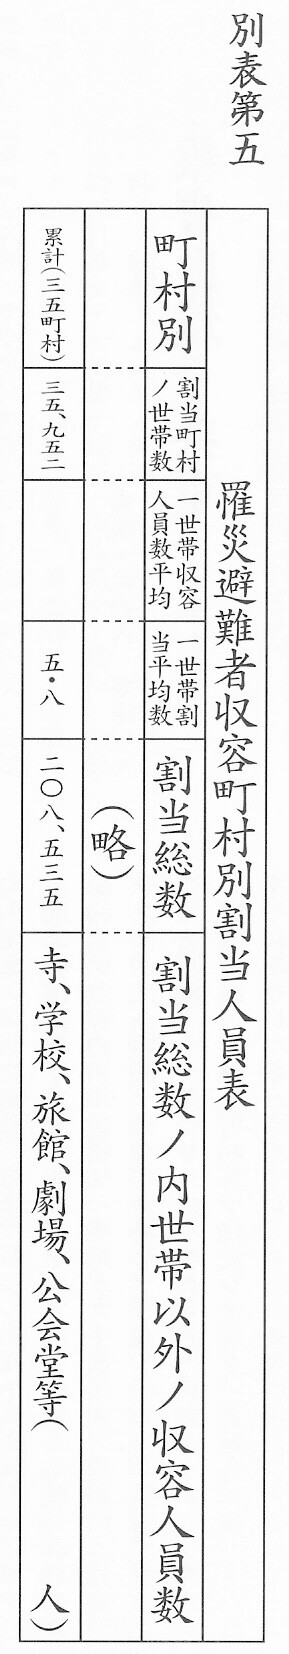 別表第五
罹災避難者収容町村別割当人員表
町村別
割当町村
ノ世帯数
一世帯収容
人員数平均
一世帯割
当平均数
割当総数
割当総数ノ内世帯以外ノ収容人員数
(略)
累計(三五町村)
三五、九五二
五・八
二〇八、五三五
寺、学校、旅館、劇場、公会堂等( 人)